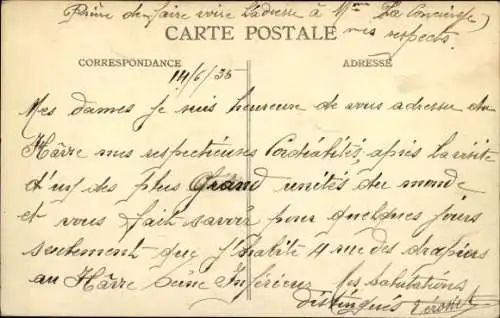 Prière de faire voire L'adresse à Mme La Concierge
mes respects.
CARTE POSTALE
CORRESPONDANCE
ADRESSE
14/6/35
Mes dames je suis heureuse de vous adresse du
Hâvre mes respectieuses Cordiabilités, après la visite
d'un des plus Grand unités du monde
et vous fait savoir pour quelques jours
seulement que j'habite 4 rue des drapiers
au Hâvre Seine Inférieure Mes salutations
distingués